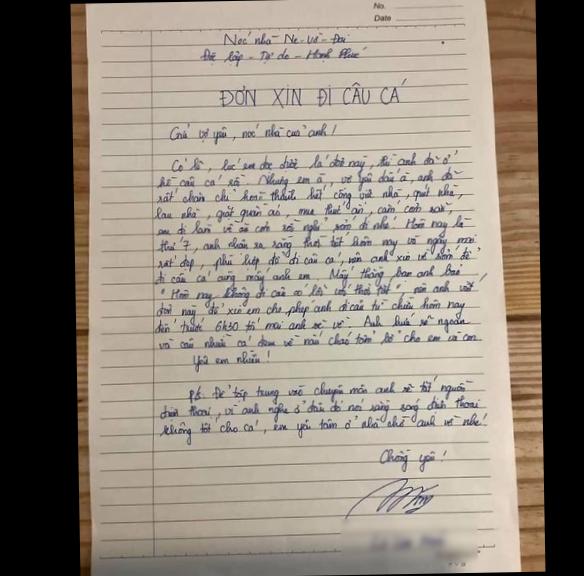 No.
Date
Nóc nhà Ne-Vờ-Đai
Độc lập - Tự do - Hạnh Phúc
ĐƠN XIN ĐI CÂU CÁ
Gửi vợ yêu, nóc nhà của anh!
Có lẽ, lúc em đọc được lá đơn này, thì anh đã ở
hồ câu cá rồi. Nhưng em à, vợ yêu dấu à, anh đã
rất chăm chỉ hoàn thành hết công việc nhà, quét nhà,
lau nhà, giặt quần áo, mua thức ăn, cắm cơm sau
em đi làm về ăn cơm rồi nghỉ sớm đi nhé. Hôm nay là
thứ 7, anh nhận ra rằng thời tiết hôm nay và ngày mai
rất đẹp, phù hợp để đi câu cá, nên anh xin về sớm để
đi câu cá cùng mấy anh em. Mấy thằng bạn anh bảo
"Hôm nay không đi câu có lỗi với thời tiết" nên anh viết
đơn này để xin em cho phép anh đi câu từ chiều hôm nay
đến trước 6h30 tối mai anh sẽ về. Anh hứa sẽ ngoan
và câu nhiều cá đem về nấu cháo tẩm bổ cho em và con.
Yêu em nhiều!
P/s: Để tập trung vào chuyên môn anh sẽ tắt nguồn
điện thoại, vì anh nghe ở đâu đó nói rằng sóng điện thoại
không tốt cho cá, em yên tâm ở nhà chờ anh về nhé!
Chồng yêu!